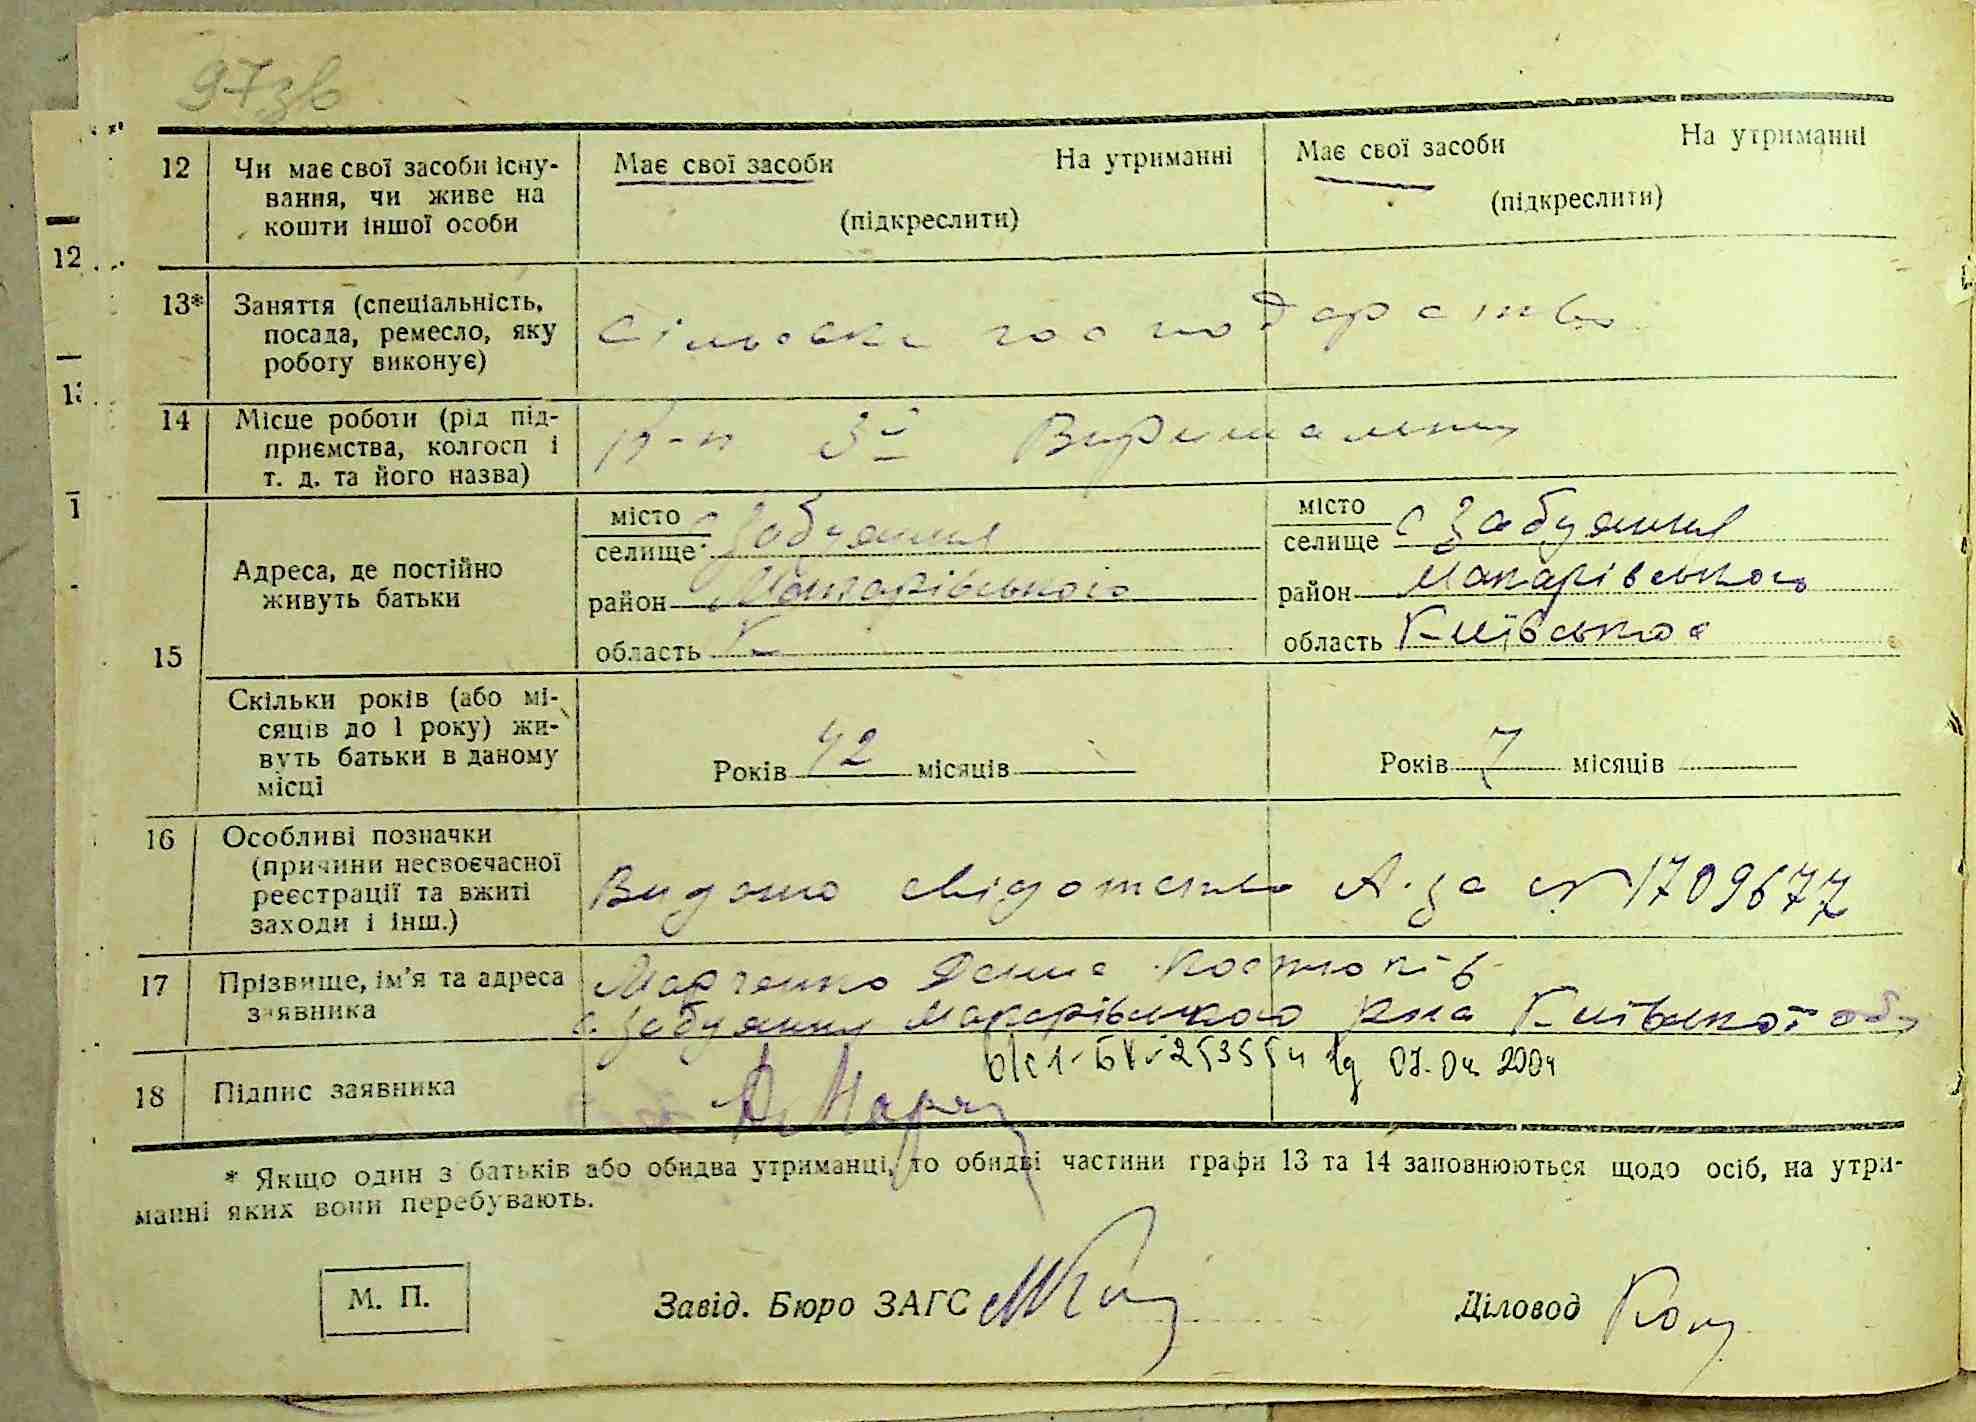 97зв
12 Чи має свої засоби існу- Має свої засоби На утриманні Має свої засоби На утриманні
вання, чи живе на
кошти іншої особи (підкреслити) (підкреслити)
13* Заняття (спеціальність,
посада, ремесло, яку сільське господарство
роботу виконує)
14 Місце роботи (рід під-
приємства, колгосп і 3й Вирішальний
т. д. та його назва)
місто с Забуяння місто с Забуяння
селище селище
Адреса, де постійно
живуть батьки район Макарівського район Макарівського
15 область К область Київської
Скільки років (або мі-
сяців до 1 року) жи-
вуть батьки в даному Років 42 місяців Років 7 місяців
місці
16 Особливі позначки
(причини несвоєчасної
реєстрації та вжиті Видано свідотство А-за № 1709677
заходи і інш.)
17 Прізвище, ім'я та адреса Марченко Денис
заявника с. Забуяння Макарівського рна Київської обл
1-БК 253554 07.04 2004
18 Підпис заявника Д. Марч
* Якщо один з батьків або обидва утриманці, то обидві частини графи 13 та 14 заповнюються щодо осіб, на утри-
манні яких вони перебувають.
М. П. Завід. Бюро ЗАГС Діловод